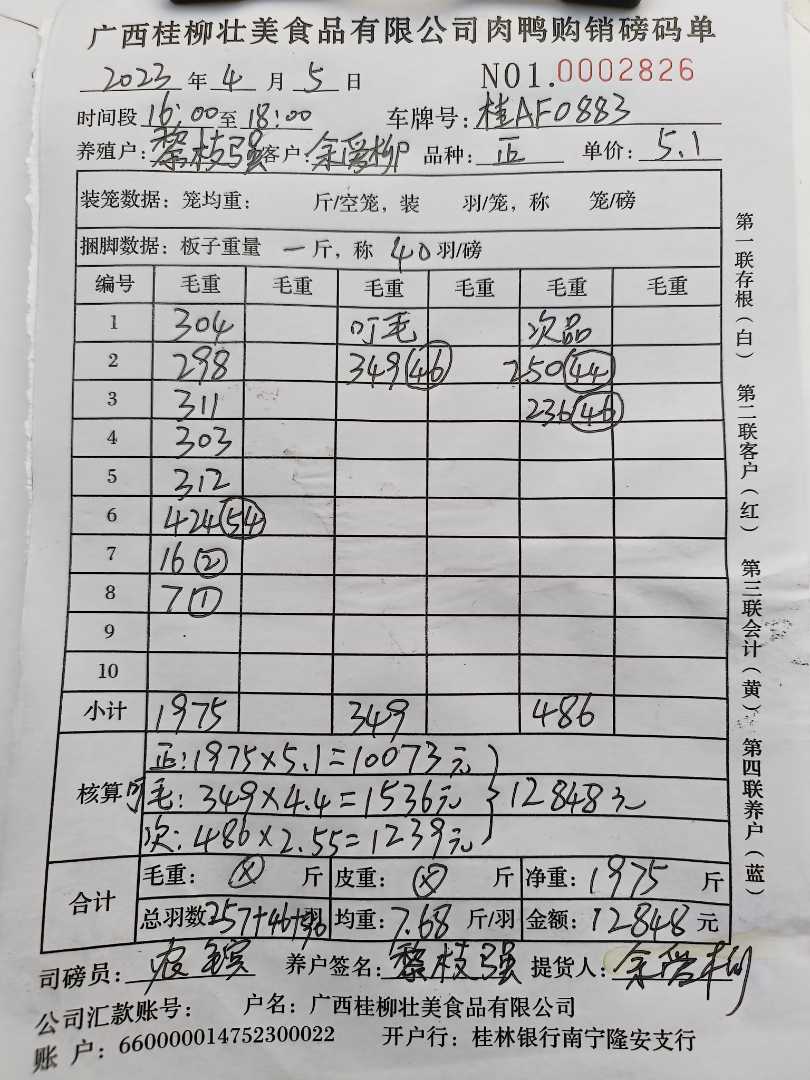 广西桂柳壮美食品有限公司肉鸭购销磅码单
2023年4月5日 NO1.0002826
时间段16:00至18:00 车牌号:桂AF0883
养殖户:黎枝强 客户: 品种:正 单价:5.1
装笼数据:笼均重: 斤/空笼,装 羽/笼,称 笼/磅
捆脚数据:板子重量 一斤,称 40羽/磅
编号 毛重 毛重 毛重 毛重 毛重 毛重
1 304 叮毛 次品
2 298 349(46) 250(44)
3 311 236(46)
4 303
5 312
6 424(54)
7 16(2)
8 7(1)
9
10
小计 1975 349 486
核算 正:1975×5.1=10073元
叮毛:349×4.4=1536元 } 12848元
次:486×2.55=1239元
合计 毛重:ⓧ斤 皮重:ⓧ斤 净重:1975斤
总羽数257+46+ 羽 均重:7.68斤/羽 金额:12848元
司磅员: 养户签名:黎枝强 提货人:
公司汇款账号: 户名:广西桂柳壮美食品有限公司
账 户:660000014752300022 开户行:桂林银行南宁隆安支行
第一联存根(白) 第二联客户(红) 第三联会计(黄) 第四联养户(蓝)